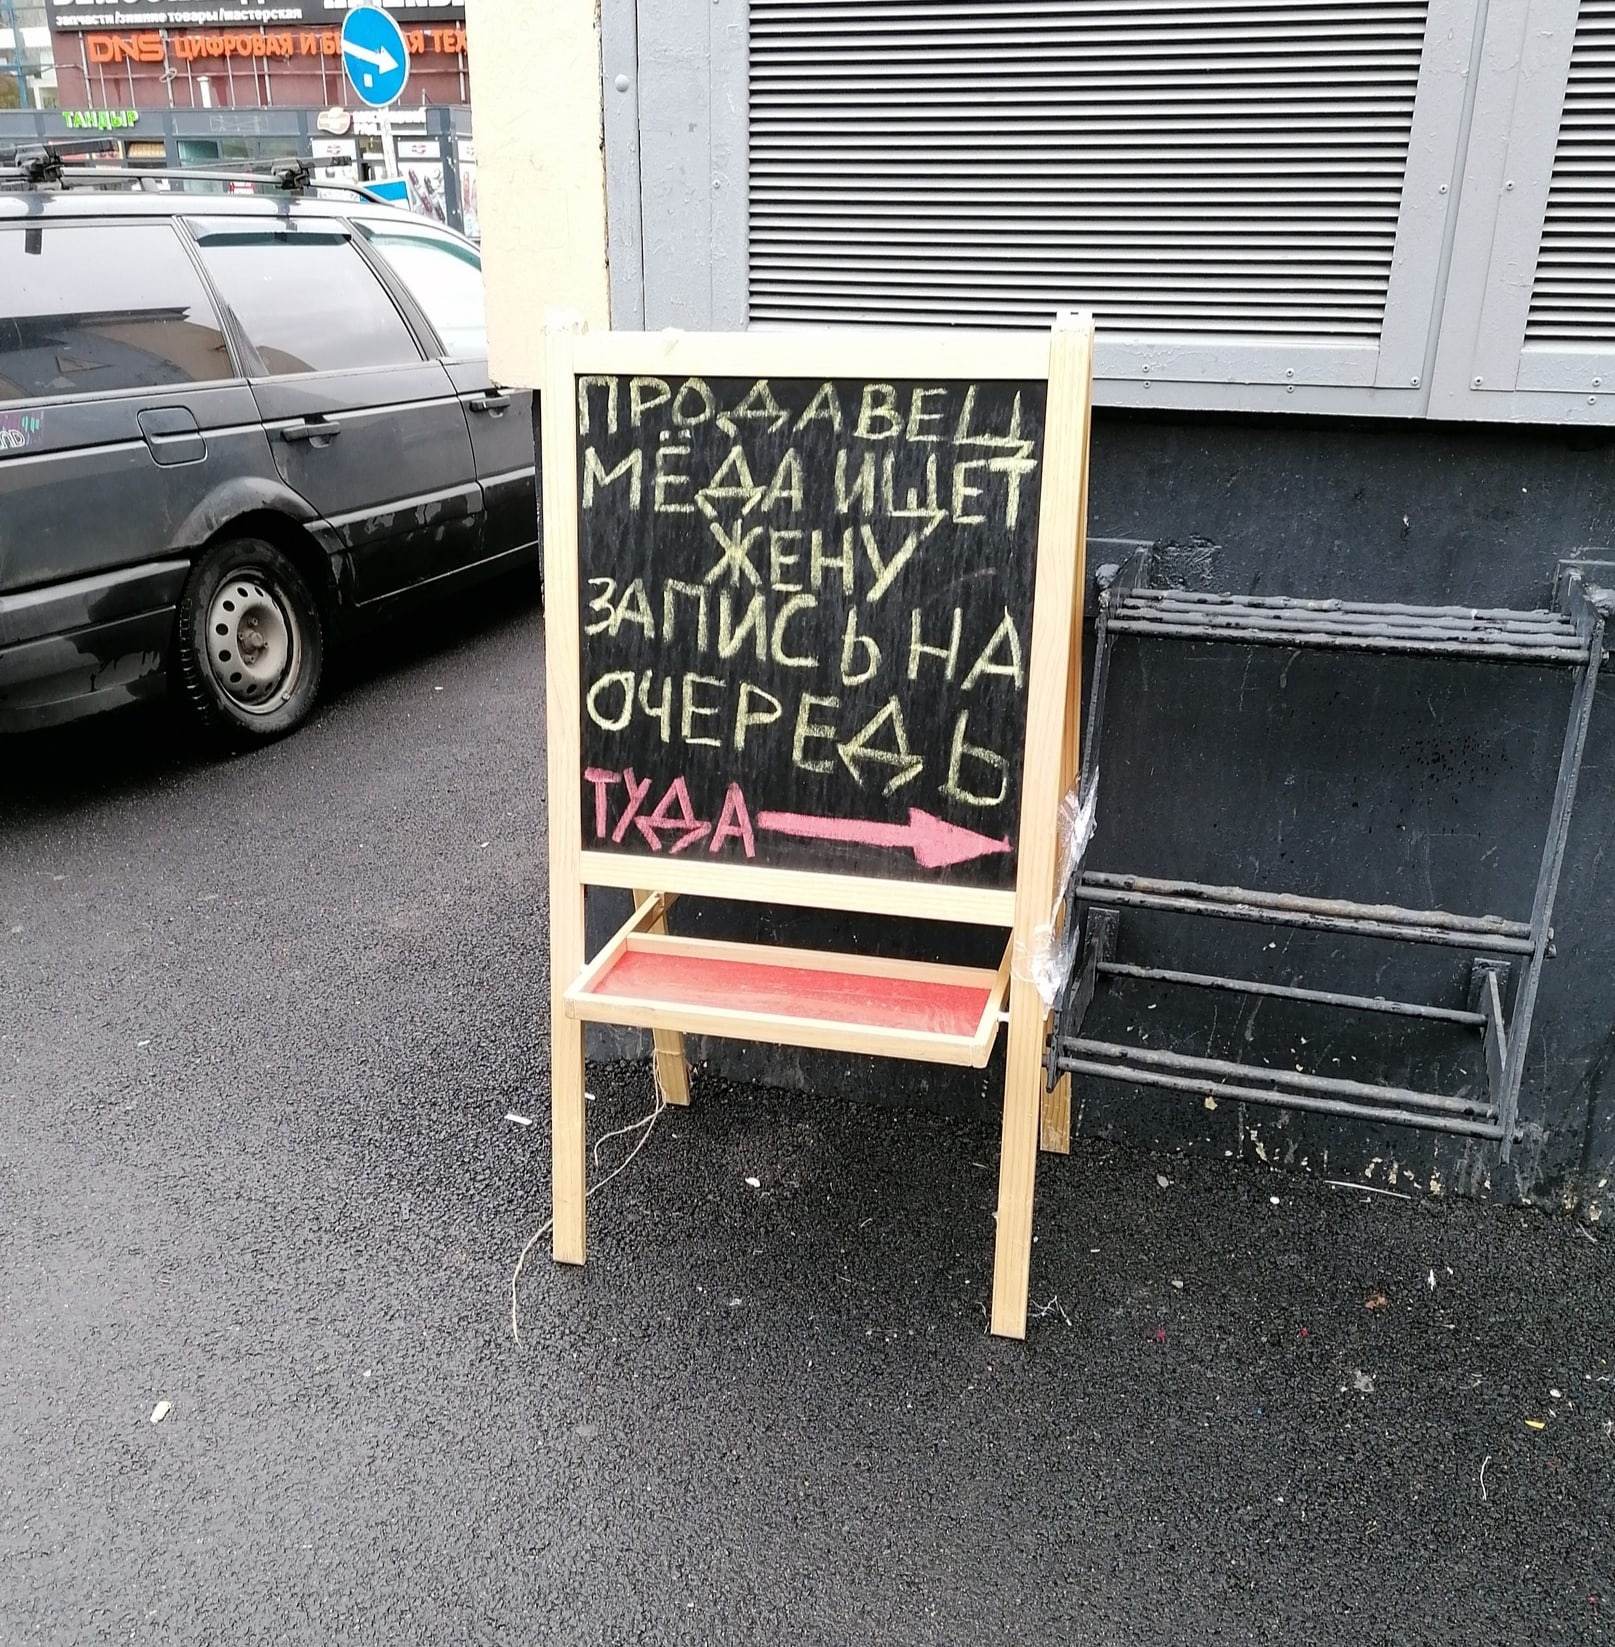 запчасти/зимние товары/мастерская
DNS ЦИФРОВАЯ И
ТАНДЫР
ПРОДАВЕЦ
МЁДА ИЩЕТ
ЖЕНУ
ЗАПИСЬ НА
ОЧЕРЕДЬ
ТУДА